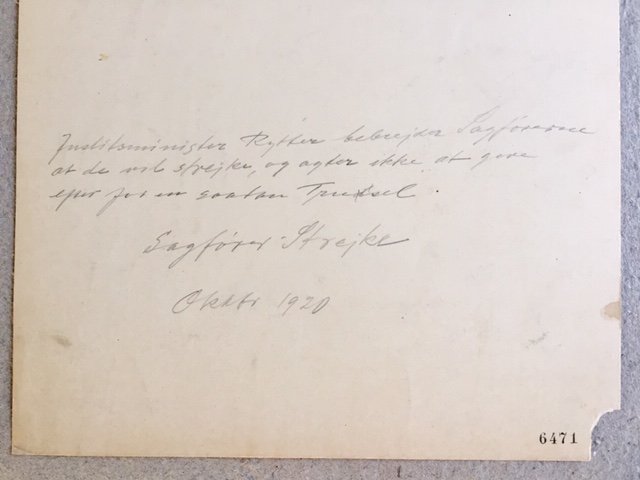 Justitsminister Rytter bebrejder Sagførerne
at de vil strejke, og agter ikke at gøre
efter for en saadan Trussel
Sagfører-Strejke
Oktbr 1920
6471